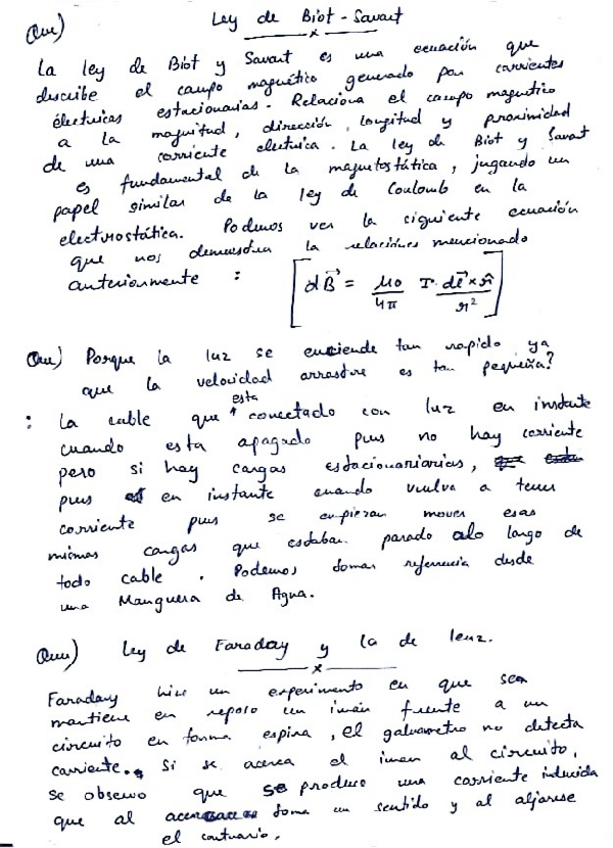 Que) Ley de Biot-Savart
La ley de Biot y Savart es una ecuación que
describe el campo magnético generado por corrientes
électricas estacionarias. Relaciona el campo magnetico
a la magnitud, dirección, longitud y proximidad
de una corriente electrica. La ley de Biot y Savat
es fundamental de la magnetostática, jugando un
papel similar de la ley de Coulomb en la
electrostática. Podemos ver la siguiente ecuación
que nos demuestra la relaciónes mencionado
anteriormente : [dB⃗ = μ0/4π I·dl⃗×r̂/r²]
Que) Porque la luz se enciende tan rapido ya
que la velocidad arrastre es tan pequeña?
: La cable que esta conectado con luz en instante
cuando esta apagado pues no hay corriente
pero si hay cargas estacionariarias,
pues en instante cuando vuelva a tener
corriente pues se empiezan mover esas
mismas cargas que estaban parado alo largo de
todo cable. Podemos tomar referencia desde
una Manguera de Agua.
Que) Ley de Faraday y la de lenz.
Faraday hizo un experimento en que sea
mantiene en reposo un imán frente a un
circuito en forma espira, el galvametro no detecta
carriente. Si se acerca el iman al circuito,
se observo que se produce una corriente inducida
que al acercarse toma un sentido y al aljarse
el contrario.